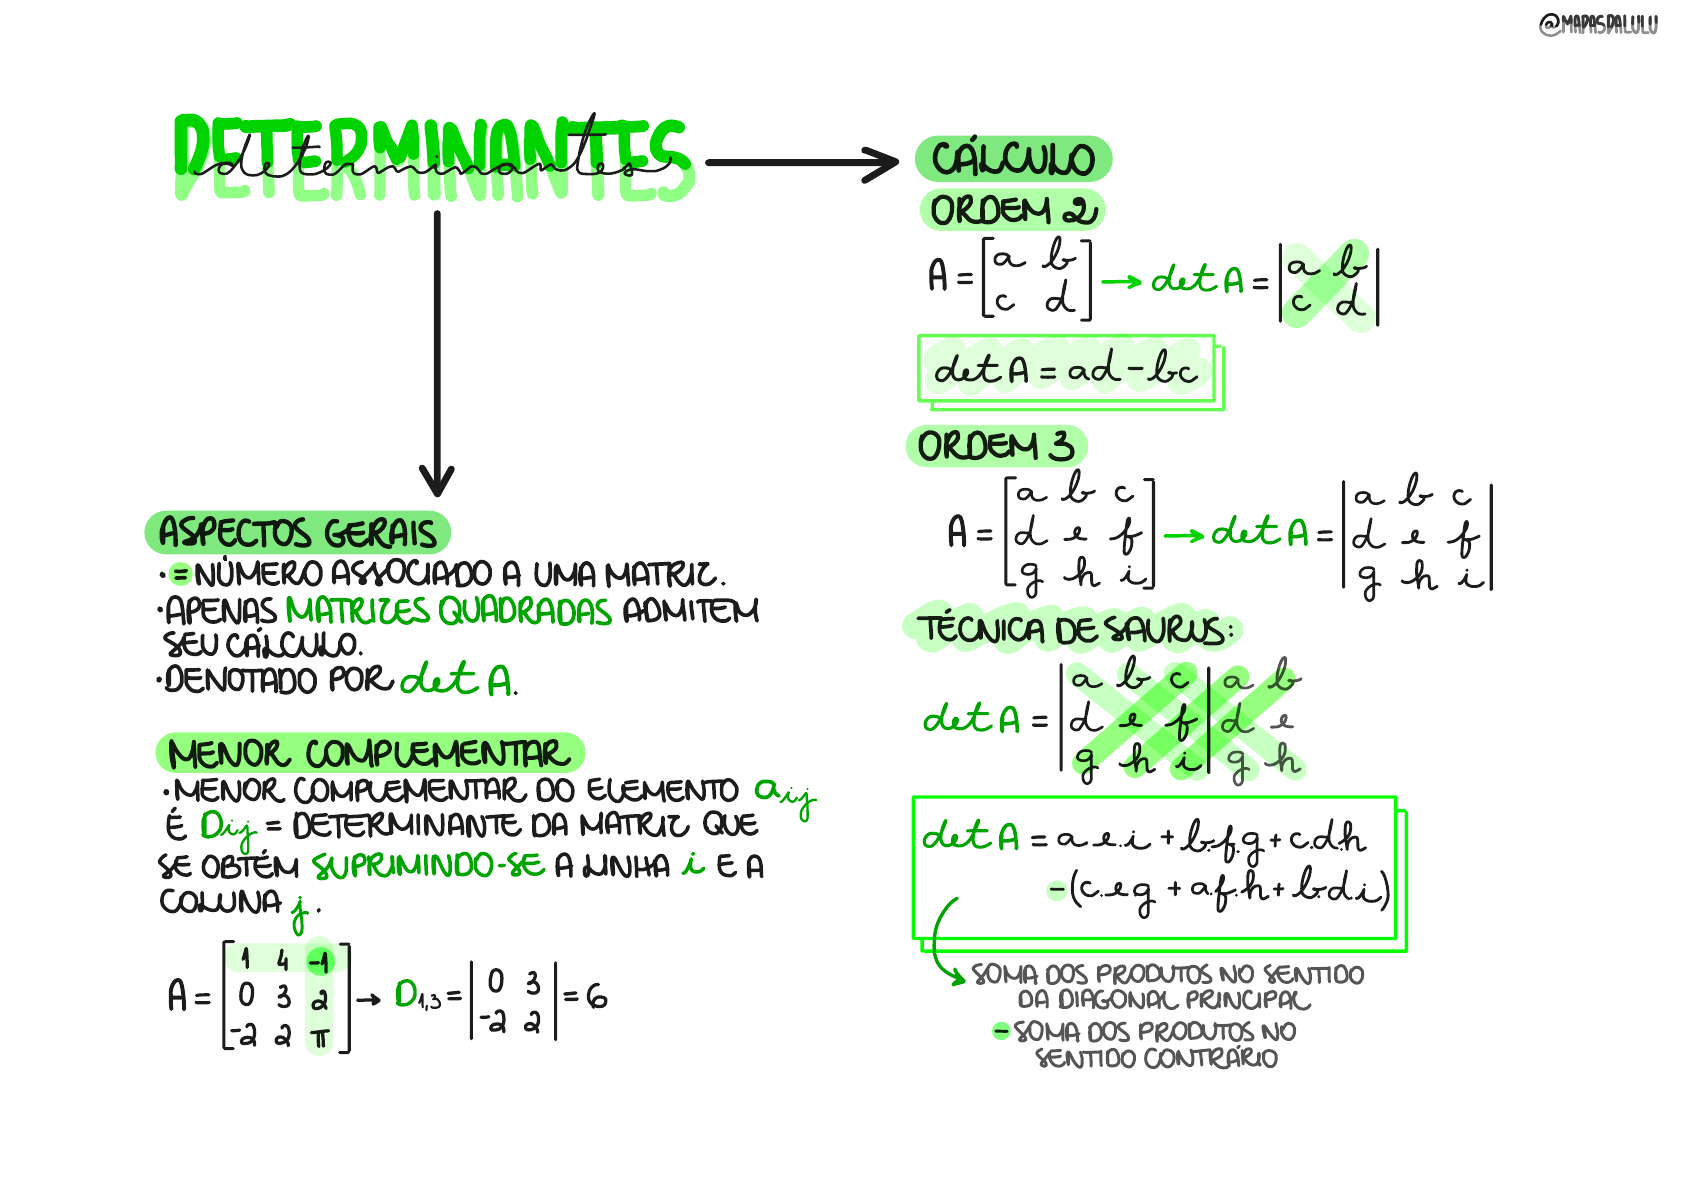 @MAPASDALULU
DETERMINANTES
determinantes
ASPECTOS GERAIS
· = NÚMERO ASSOCIADO A UMA MATRIZ.
· APENAS MATRIZES QUADRADAS ADMITEM
SEU CÁLCULO.
· DENOTADO POR det A.
MENOR COMPLEMENTAR
· MENOR COMPLEMENTAR DO ELEMENTO aij
É Dij = DETERMINANTE DA MATRIZ QUE
SE OBTÉM SUPRIMINDO-SE A LINHA i E A
COLUNA j.
1 4 -1
A = 0 3 2 → D1,3 = 0 3 = 6
-2 2 π -2 2
CÁLCULO
ORDEM 2
A = [a b → det A = |a b|
c d] c d
det A = ad - bc
ORDEM 3
a b c a b c
A = d e f → det A = d e f
g h i g h i
TÉCNICA DE SAURUS:
a b c | a b
det A = d e f | d e
g h i | g h
det A = a.e.i + b.f.g + c.d.h
- (c.e.g + a.f.h + b.d.i)
SOMA DOS PRODUTOS NO SENTIDO
DA DIAGONAL PRINCIPAL
- SOMA DOS PRODUTOS NO
SENTIDO CONTRÁRIO